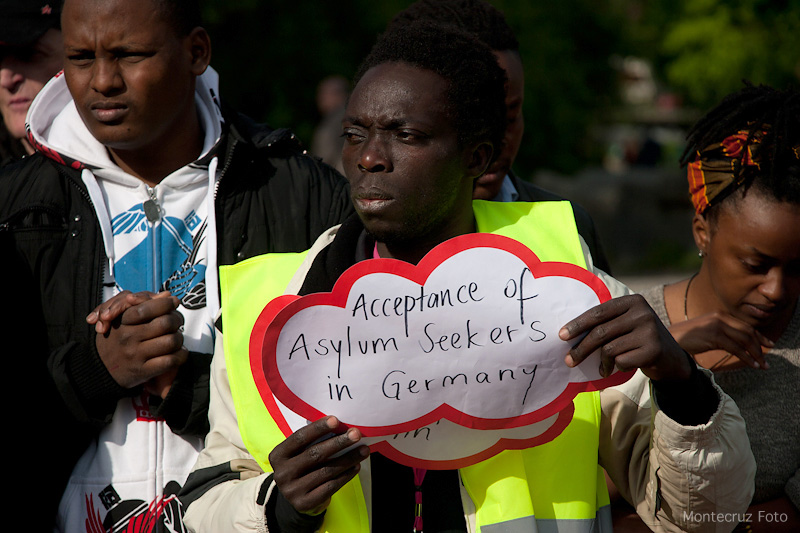 Acceptance of
Asylum Seekers
in Germany
Montecruz Foto